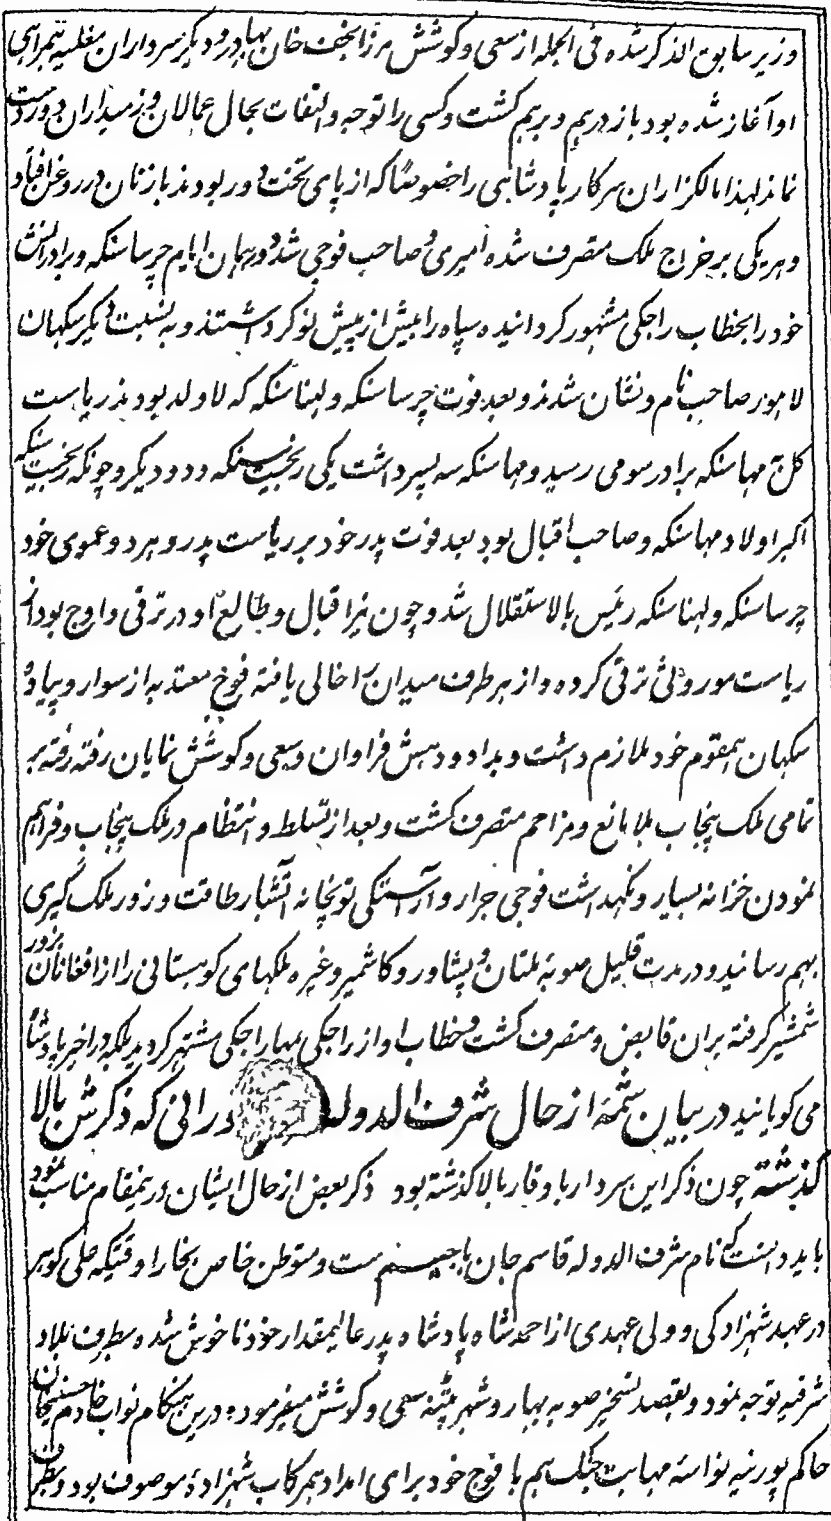 وزیر سابق الذکر شده فی الجمله از سعی و کوشش مرزا نجف خان بهادر و دیگر سرداران مغلیه همراهی
او آغاز شده بود باز درهم و برهم گشت و کسی را توجه و التفات بحال عمالان و زمینداران دوردست
نماند لهذا مالگزاران سرکار پادشاهی را خصوصًا که از پای تخت دور بودند باز نان در روغن افتاد
و هر یکی بر خراج ملک متصرف شده امیری و صاحب فوجی شد و درهمان ایام چرسا سنگه و برادرانش
خود را بخطاب راجگی مشهور گردانیده سپاه را بیش از پیش نوکر داشتند و به نسبت دیگر سکهان
لاهور صاحب نام و نشان شدند و بعد فوت چرسا سنگه و لهنا سنگه که لاولد بودند ریاست
کل به مها سنگه برادر سومی رسید و مها سنگه سه پسر داشت یکی رنجیت سنگه و دو دیگر و چونکه رنجیت سنگه
اکبر اولاد مها سنگه و صاحب اقبال بود بعد فوت پدر خود بر ریاست پدر و هر دو عموی خود
چرسا سنگه و لهنا سنگه رئیس بالاستقلال شد و چون نیر اقبال و طالع او در ترقی و اوج بود از
ریاست موروثی ترقی کرده و از هر طرف میدان را خالی یافته فوج معتد به از سوار و پیاده
سکهان همقوم خود ملازم داشت و بداد و دهش فراوان و سعی و کوشش نمایان رفته رفته بر
تمامی ملک پنجاب بلا مانع و مزاحم متصرف گشت و بعد از تسلط و انتظام در ملک پنجاب و فراهم
نمودن خزانه بسیار و نگهداشت فوجی جرار و آراستگی توپخانه آتشبار طاقت و زور ملک گیری
بهم رسانید و در مدت قلیل صوبه ملتان و پشاور و کاشمیر و غیره ملکهای کوهستانی را از افغانان بزور
شمشیر گرفته بران قابض و متصرف گشت و خطاب او از راجگی مهاراجگی مشتهر گردید بلکه در اخیر پادشاه
می گویانید در بیان شمهٔ از حال شرف الدوله درانی که ذکرش بالا
گذشته چون ذکر این سردار با وقار بالا گذشته بود ذکر بعض از حال ایشان درینمقام مناسب نمود
باید دانست که نام شرف الدوله قاسم جان ست و متوطن خاص بخارا وقتیکه علی گوهر
در عهد شهزادگی و ولی عهدی از احمد شاه پادشاه پدر عالیمقدار خود ناخوش شده بطرف بلاد
شرقیه توجه نمود و بقصد تسخیر صوبه بهار و شهر پٹنه سعی و کوشش میفرموده درین هنگام نواب خادم حسینخان
حاکم پورنیه نواسه مهابت جنگ هم با فوج خود برای امداد همرکاب شهزادهٔ موصوف بود و بطرف